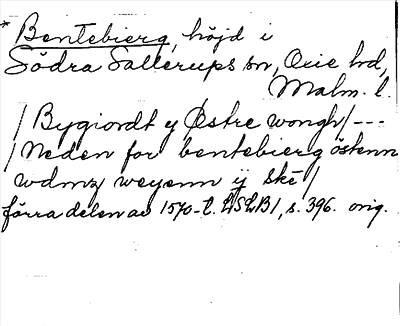 * Bentebierg, höjd i
Södra Sallerups sn, Oxie hd,
Malm. l.
/ Bygiordt y Østre wongh / ---
/ Neden for bentebierg östenn
wdmz weyenn ij skē /
förra delen av 1570-t. LSLB1, s. 396. orig.